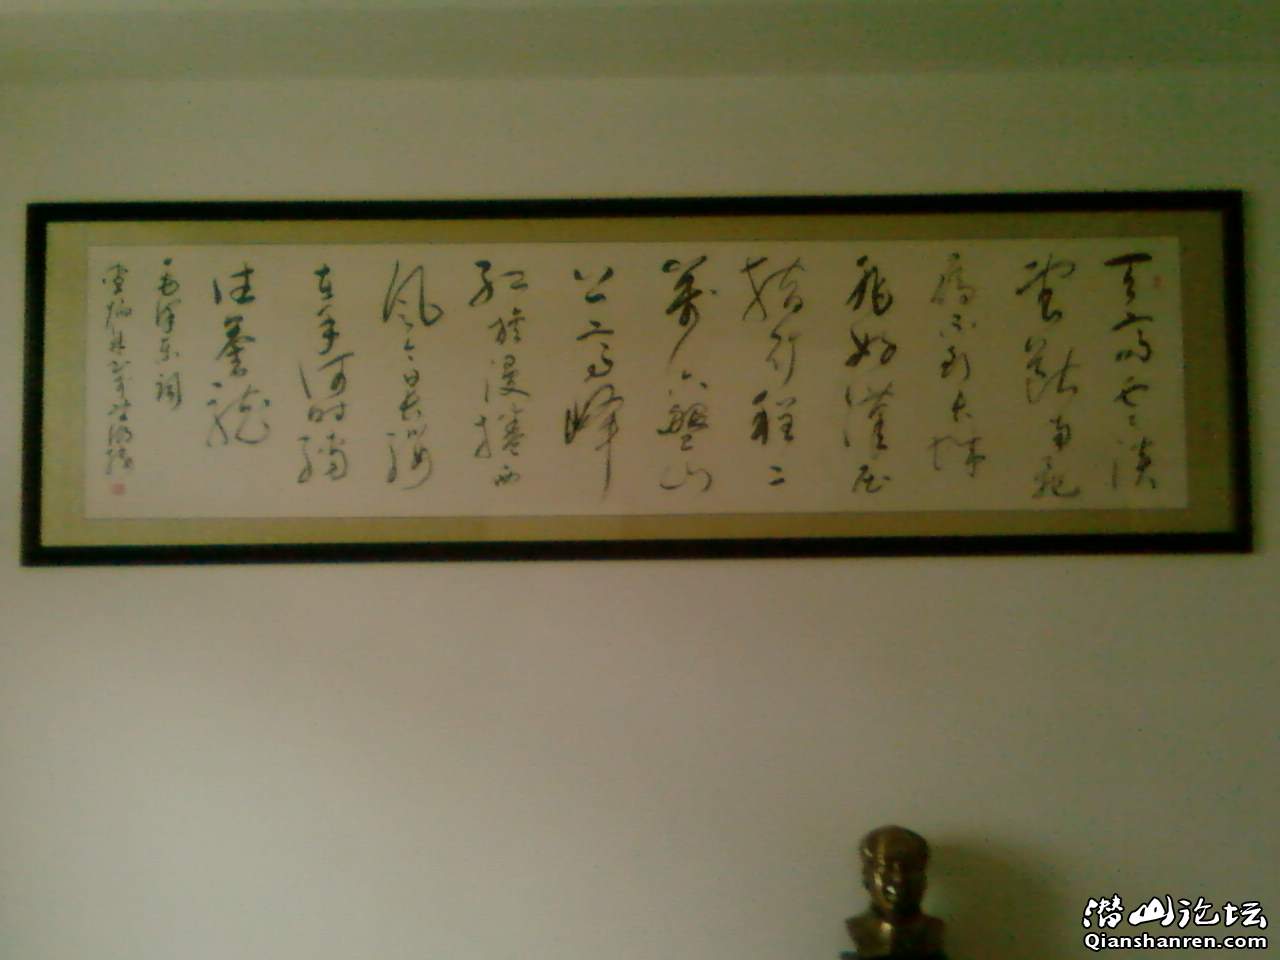 天高云淡
望斷南飛
雁不到长城
非好漢屈
指行程二
萬六盤山
上高峰
红旗漫捲西
风今日长缨
在手何时缚
住蒼龍
毛泽东词
潜山论坛
Qianshanren.com